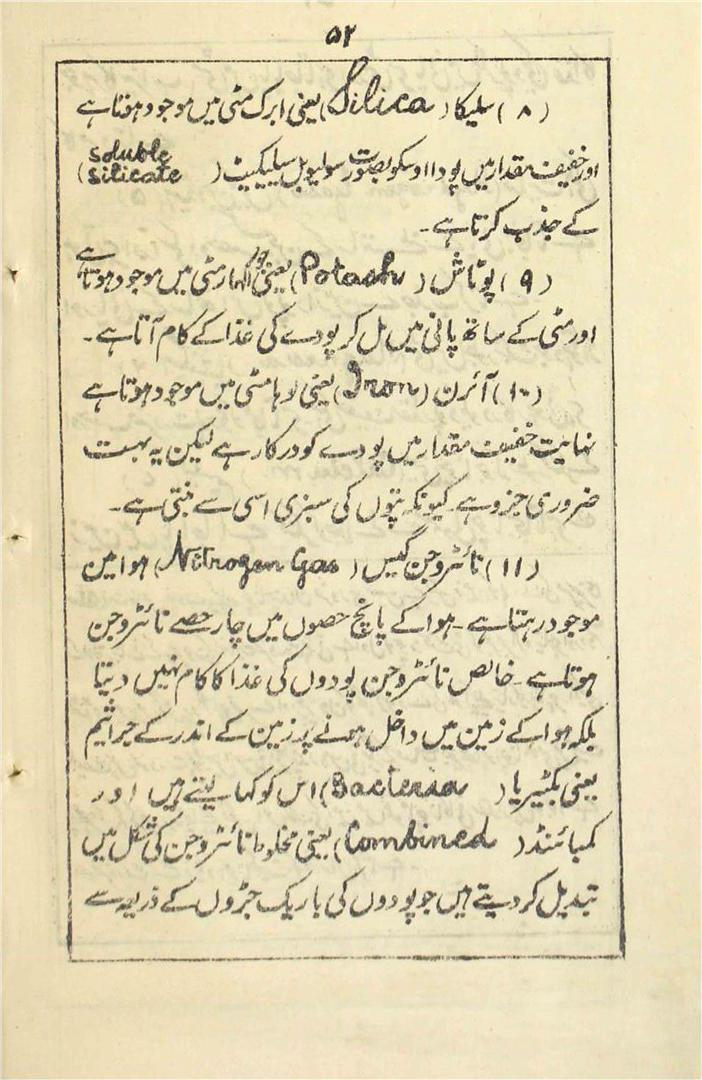 ۵۲
(۸) سلیکا (Silica) یعنی ابرک مٹی میں موجود ہوتا ہے
اور خفیف مقدار میں پودا اوسکو بصورت سولیوبل سیلیکیٹ (soluble silicate)
کے جذب کرتا ہے۔
(۹) پوٹاش (Potash) یعنی جواکہار مٹی میں موجود ہوتا ہے
اور مٹی کے ساتھ پانی میں مل کر پودے کی غذا کے کام آتا ہے۔
(۱۰) آئرن (Iron) یعنی لوہا مٹی میں موجود ہوتا ہے
نہایت خفیف مقدار میں پودے کو درکار ہے لیکن یہ بہت
ضروری جزو ہے کیونکہ پتوں کی سبزی اسی سے بنتی ہے۔
(۱۱) نائٹروجن گیس (Nitrogen Gas) ہوا مین
موجود رہتا ہے۔ ہوا کے پانچ حصوں میں چار حصے نائٹروجن
ہوتا ہے۔ خالص نائٹروجن پودوں کی غذا کا کام نہیں دیتا
بلکہ ہوا کے زمین میں داخل ہونے پر زمین کے اندر کے جراثیم
یعنی بکٹیریا (Bacteria) اس کو کہا لیتے ہیں اور
کمبائنڈ (Combined) یعنی مخلوط نائٹروجن کی شکل میں
تبدیل کر دیتے ہیں جو پودوں کی باریک جڑوں کے ذریعہ سے